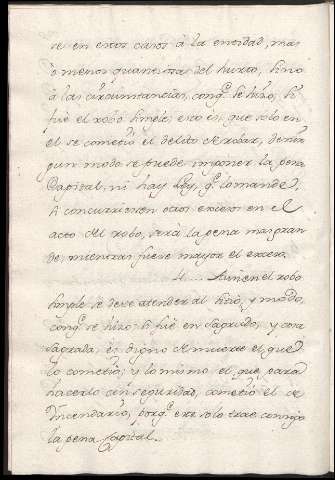 se en estos casos á la entidad, mas
ó menos quantiosa del hurto, sino
á las circunstancias, conq.e se hizo; Si
fué el robo simple, esto es, que solo en
el se cometió el delito de robar, denin
gun modo se puede imponer la pena
Capital, ni hay Ley, q.e lo mande.
Si concurrieron otros excesos en el
acto del robo, será la pena mas gran
de, mientras fuere mayor el exceso.
4.... Aun en el robo
simple se deve atender al sitio, y modo,
conq.e se hizo: Si fué en Sagrado, y cosa
sagrada, es digno de muerte el que
lo cometió; y lo mismo el que para
hacerlo con seguridad, cometió el de
Incendario, porq.e este solo trae consigo
la pena Capital.